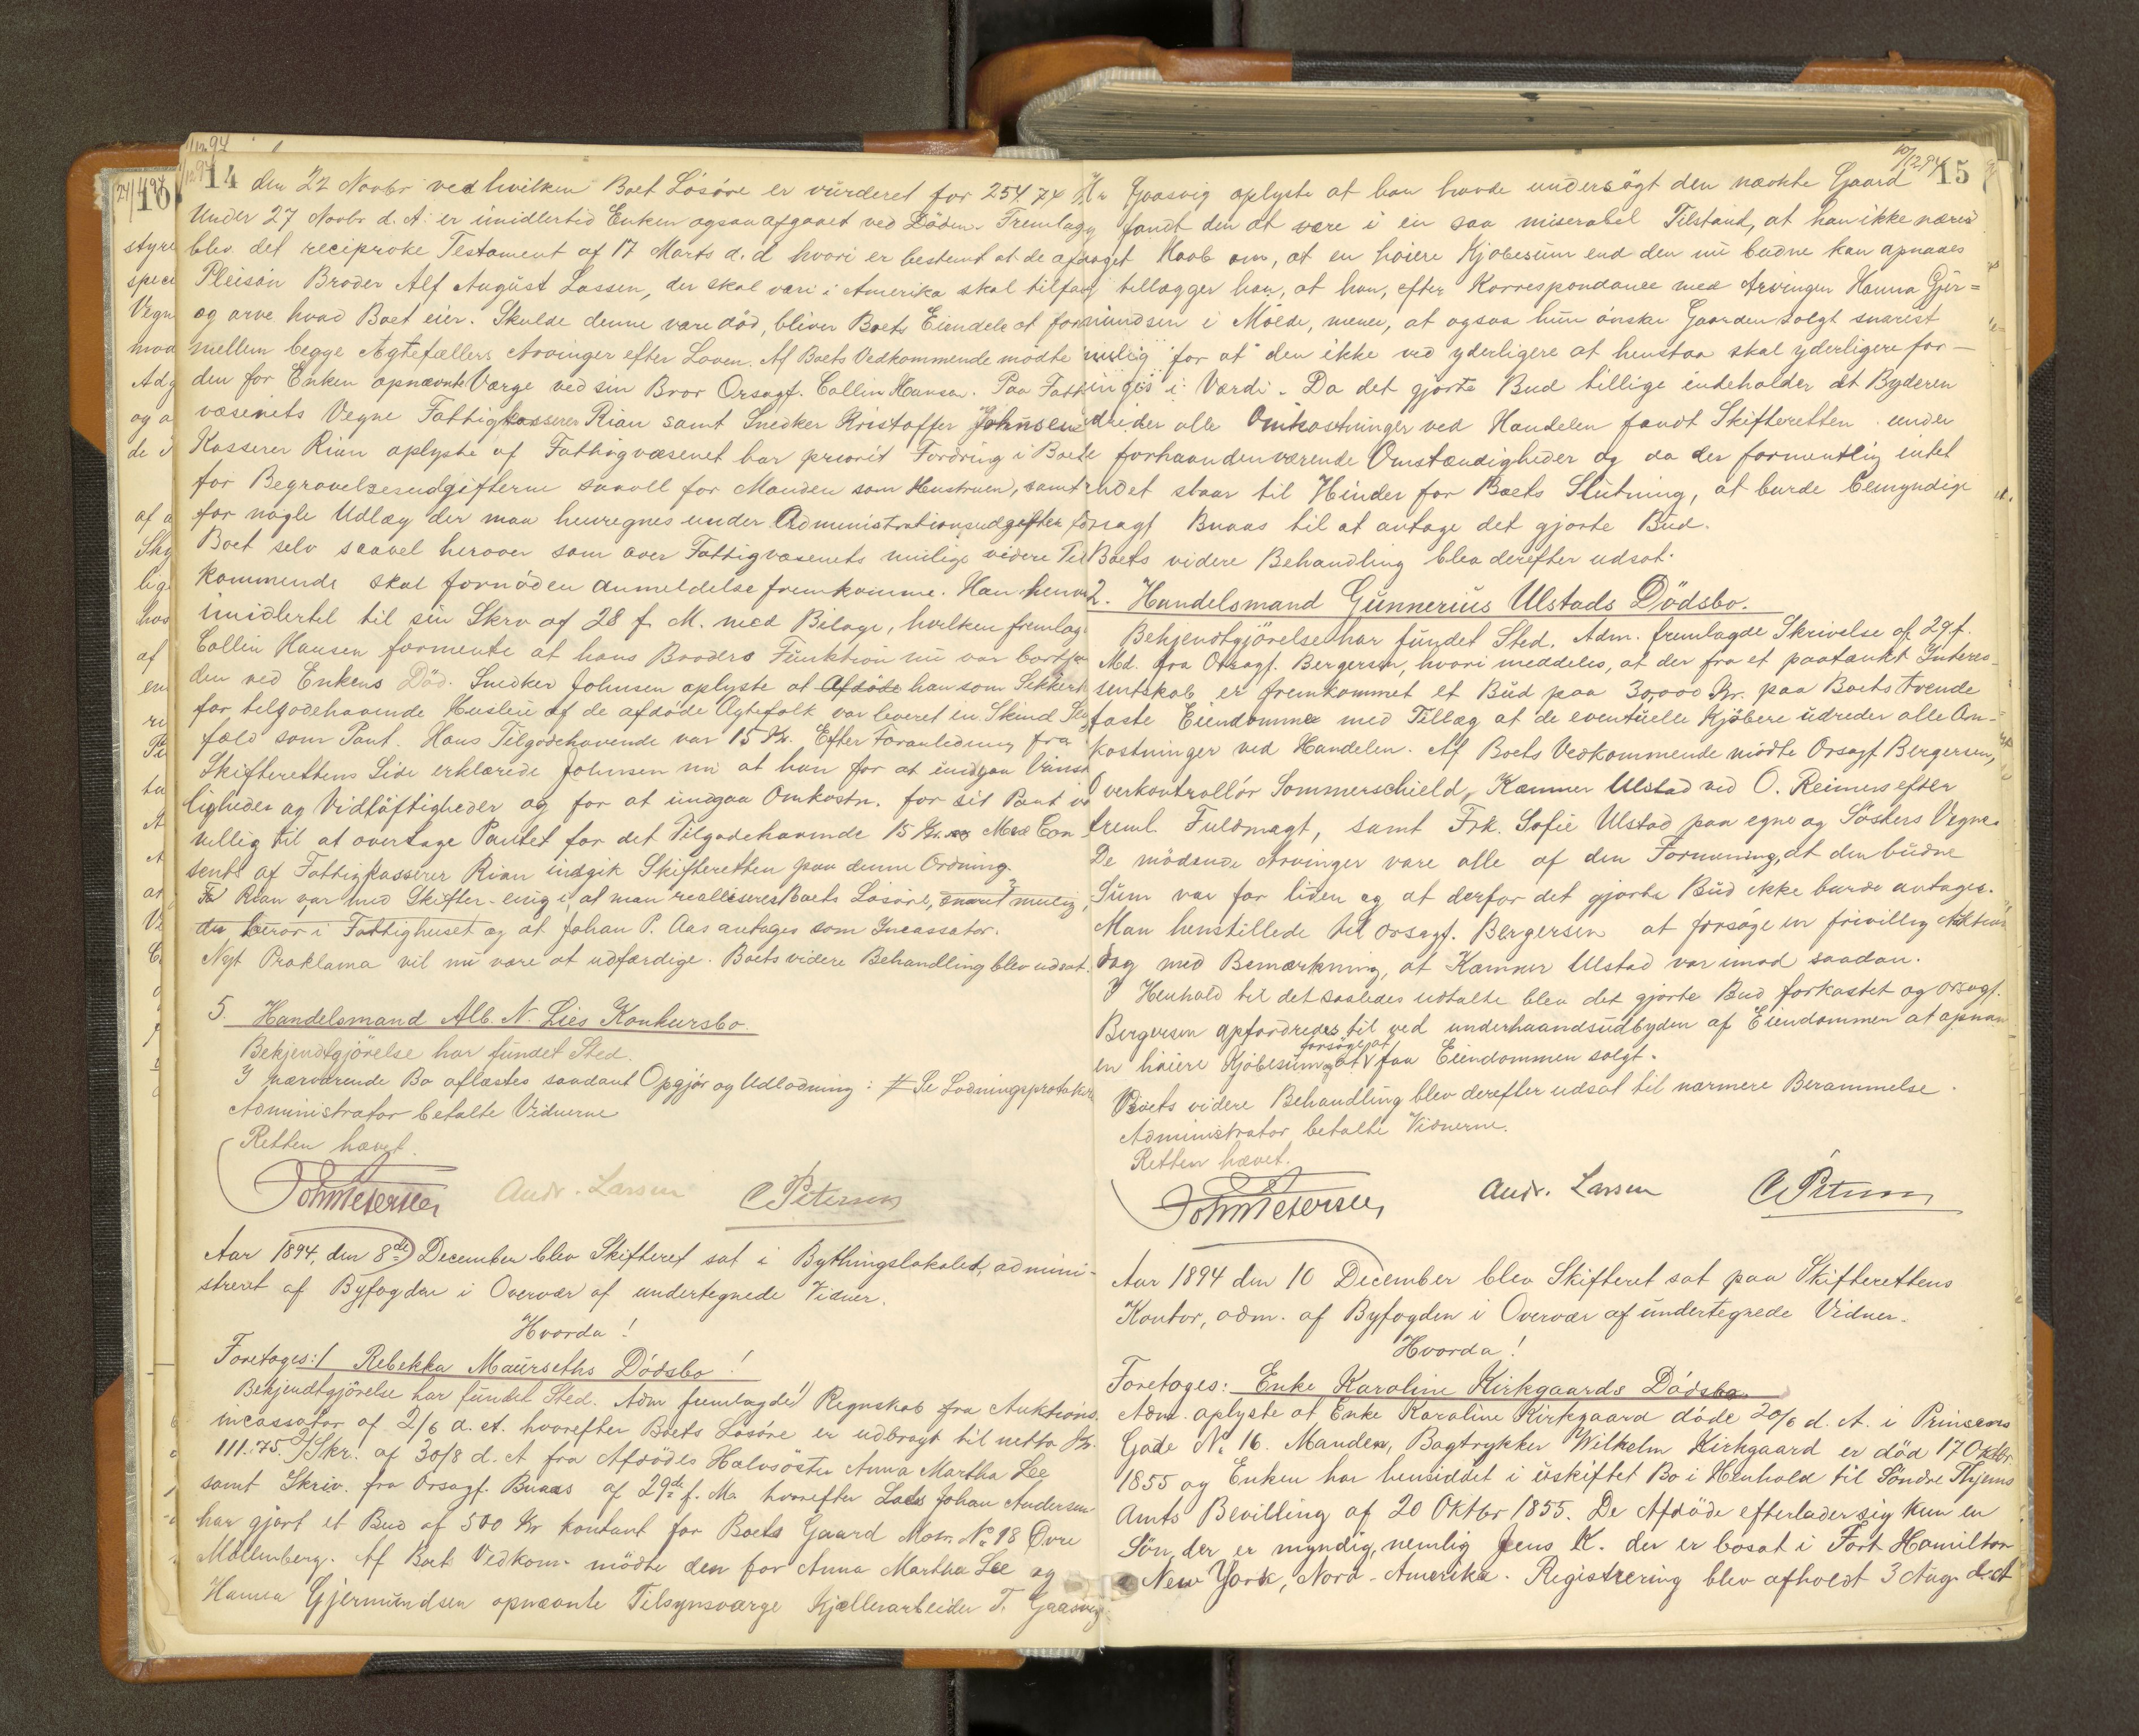 1/12 94
14
den 22 Novbr ved hvilken Boet Lösöre er vurderet for 254.74
Under 27 Novbr d. A. er imidlertid Enken ogsaa afgaaet ved Döden. Fremlagt
blev det reciproke Testament af 17 Marts d. d hvori er bestemt at de af
Pleisön Broder Alf August Lassen, der skal være i Amerika skal tilfal
og arve hvad Boet eier. Skulde denne være död, bliver Boets Eiendele at for
mellem begge Ægtefællers Arvinger efter Loven. Af Boets Vedkommende mödte
den for Enken opnævnte Værge ved sin Bror Orsagf. Collin Hansen. Paa Fatt
væsenets Vegne Fattigkasserer Rian samt Snedker Kristoffer Johnsen
Kasserer Rian oplyste at Fattigvæsenet har priorit Fordring i Boet
for Begravelsesudgifterne saavell for Manden som Hustruen, samt
for nogle Udlæg der maa henregnes under Administrationsudgifter
Boet selv saavel herover som over Fattigvæsenets mulige videre Til
kommende skal fornöden anmeldelse fremkomme. Han henv
imidlertid til sin Skrv af 28 f. M. med Bilage, hvilken fremlag
Collin Hansen formente at hans Broders Funktion nu var bortfa
den ved Enkens Död. Snedker Johnsen oplyste at Afdöde han som Sikkerh
for tilgodehavende Husleie af de afdöde Ægtefolk var leveret en Skind
fæld som Pant. Hans Tilgodehavende var 15 Kr. Efter Foranledning fra
Skifterettens Side erklærede Johnsen nu at han for at undgaa Vansk
ligheder og Vidlöftigheder og for at undgaa Omkostn. for sit Pant
villig til at overtage Pantet for det Tilgodehavende 15 Kr. Med Con
sents af Fattigkasserer Rian indgik Skifteretten paa denne Ordning.
Rian var med Skifter. enig i, at man realliseres Boets Lösöre, snarest mulig,
der beror i Fattighuset og at Johan P. Aas antages som Incassator.
Nyt Proklama vil nu være at udfærdige. Boets videre Behandling blev udsat.
5. Handelsmand Alb. N. Lies Konkursbo.
Bekjendtgjörelse har fundet Sted.
I nærværende Bo aflæstes saadant Opgjör og Udlodning: Se Lodningsprotokol
Administrator betalte Vidnerne
Retten hævet.
John Petersen Andr. Larsen C Petersen
Aar 1894, den 8de December blev Skifteret sat i Bythingslokalet, admini-
streret af Byfogden i Overvær af undertegnede Vidner.
Hvorda!
Foretages: 1 Rebekka Maurseths Dödsbo!
Bekjendtgjörelse har fundet Sted. Adm fremlagde 1) Regnskab fra Auktions.
incassator af 2/6 d. A. hvorefter Boets Lösöre er udbragt til netto Kr.
111.75. 2) Skr. af 30/8 d. A fra Afdödes Halvsöster Anna Martha Lee
samt Skriv. fra Orsagf. Buaas af 29de f. M. hvorefter Lars Johan Andersen
har gjort et Bud af 500 Kr kontant for Boets Gaard Matr. No 18 Övre
Möllenberg. Af Boets Vedkom. mödte den for Anna Martha Lee og
Hanna Gjermundsen opnævnte Tilsynsværge Kjællerarbeider T. Gaasvig
10/12 94
15
Hr Gaasvig oplyste at han havde undersögt den nævnte Gaard
fandt den at være i en saa miserabel Tilstand, at han ikke nærer
noget Haab om, at en höiere Kjöbesum end den nu budne kan opnaaes
tillægger han, at han, efter Korrespondance med Arvingen Hanna Gjer=
mundsen i Molde, mener, at ogsaa hun önsker Gaarden solgt snarest
mulig for at den ikke ved yderligere at henstaa skal yderligere for-
ringes i Værdi. Da det gjorte Bud tillige indeholder at Byderen
udreder alle Omkostninger ved Handelen fandt Skifteretten under
forhaandenværende Omstændigheder og da der formentlig intet
andet staar til Hinder for Boets Slutning, at burde bemyndige
Orsagf Buaas til at antage det gjorte Bud.
Boets videre Behandling blev derefter udsat.
2. Handelsmand Gunnerius Ulstads Dödsbo.
Bekjendtgjörelse har fundet Sted. Adm. fremlagde Skrivelse af 29 f.
Md. fra Orsagf. Bergersen, hvori meddeles, at der fra et paatænkt Interes-
sentskab er fremkommet et Bud paa 30,000 Kr. paa Boets tvende
faste Eiendomme med Tillæg at de eventuelle Kjöbere udreder alle Om-
kostninger ved Handelen. Af Boets Vedkommende mödte Orsagf Bergersen,
Overkontrollör Sommerschield, Kæmner Ulstad ved O. Reimers efter
freml. Fuldmagt, samt Frk. Sofie Ulstad paa egne og Sösters Vegne.
De mödende Arvinger vare alle af den Formening, at den budne
Sum var for liden og at derfor det gjorte Bud ikke burde antages.
Man henstillede til Orsagf. Bergersen at forsöge en frivillig Auktions
dag med Bemærkning, at Kæmner Ulstad var imod saadan.
I Henhold til det saaledes udtalte blev det gjorte Bud forkastet og Orsagf.
Bergersen opfordredes til ved underhaandsudbyden af Eiendommen at opnaa
en höiere Kjöbesum og at forsöge at faa Eiendommen solgt.
Boets videre Behandling blev derefter udsat til nærmere Berammelse.
Administrator betalte Vidnerne.
Retten hævet.
John Petersen Andr. Larsen C Petersen
Aar 1894 den 10 December blev Skifteret sat paa Skifterettens
Kontor, adm. af Byfogden i Overvær af undertegnede Vidner.
Hvorda!
Foretages: Enke Karoline Kirkgaards Dödsbo.
Adm. oplyste at Enke Karoline Kirkgaard döde 20/6 d. A. i Prinsens
Gade No 16. Manden, Bogtrykker Wilhelm Kirkgaard er död 17 Oktbr.
1855 og Enken har hensiddet i uskiftet Bo i Henhold til Söndre Thjems
Amts Bevilling af 20 Oktbr 1855. De Afdöde efterlader sig kun en
Sön, der er myndig, nemlig Jens K. der er bosat i Fort Hamilton
New York, Nord-Amerika. Registrering blev afholdt 3 Aug. d. A